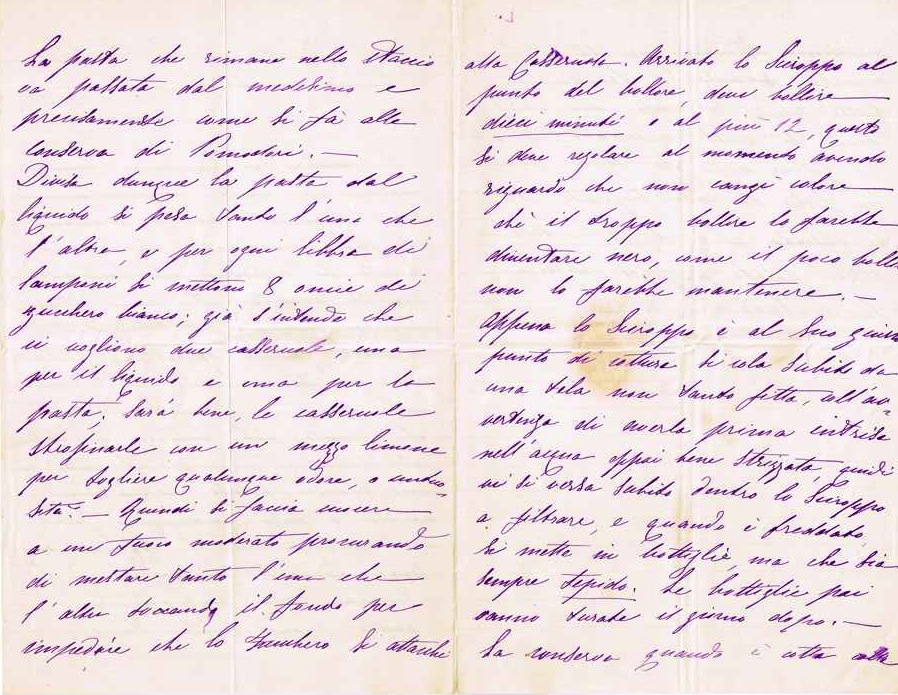 La pasta che rimane nello staccio
va passata dal medesimo e
precisamente come si fà alla
conserva di Pomodori. —
Divisa dunque la pasta dal
liquido si pesa tanto l'una che
l'altra, e per ogni libbra di
lamponi si mettono 8 oncie di
zucchero bianco; già s'intende che
ci vogliono due casseruole, una
per il liquido e una per la
pasta. Sarà bene, le casseruole
strofinarle con un mezzo limone
per togliere qualunque odore, o untuo-
sità. — Quindi si faccia cuocere
a un fuoco moderato procurando
di mestare tanto l'una che
l'altra toccando il fondo per
impedire che lo Zucchero si attacchi
alla Casseruola. Arrivato lo Siroppo al
punto del bollore, deve bollire
dieci minuti o al più 12, questo
si deve regolare al momento avendo
riguardo che non cangi colore
chè il troppo bollire lo farebbe
diventare nero, come il poco bollire
non lo farebbe mantenere. —
Appena lo Siroppo è al suo giusto
punto di cottura si cola subito da
una tela non tanto fitta, coll'av-
vertenza di averla prima intrisa
nell'acqua e poi bene strizzata, quindi
vi si versa subito dentro lo Siroppo
a filtrare, e quando è freddato,
si mette in bottiglie, ma che sia
sempre tepido. Le bottiglie poi
vanno turate il giorno dopo. —
La conserva quando è cotta